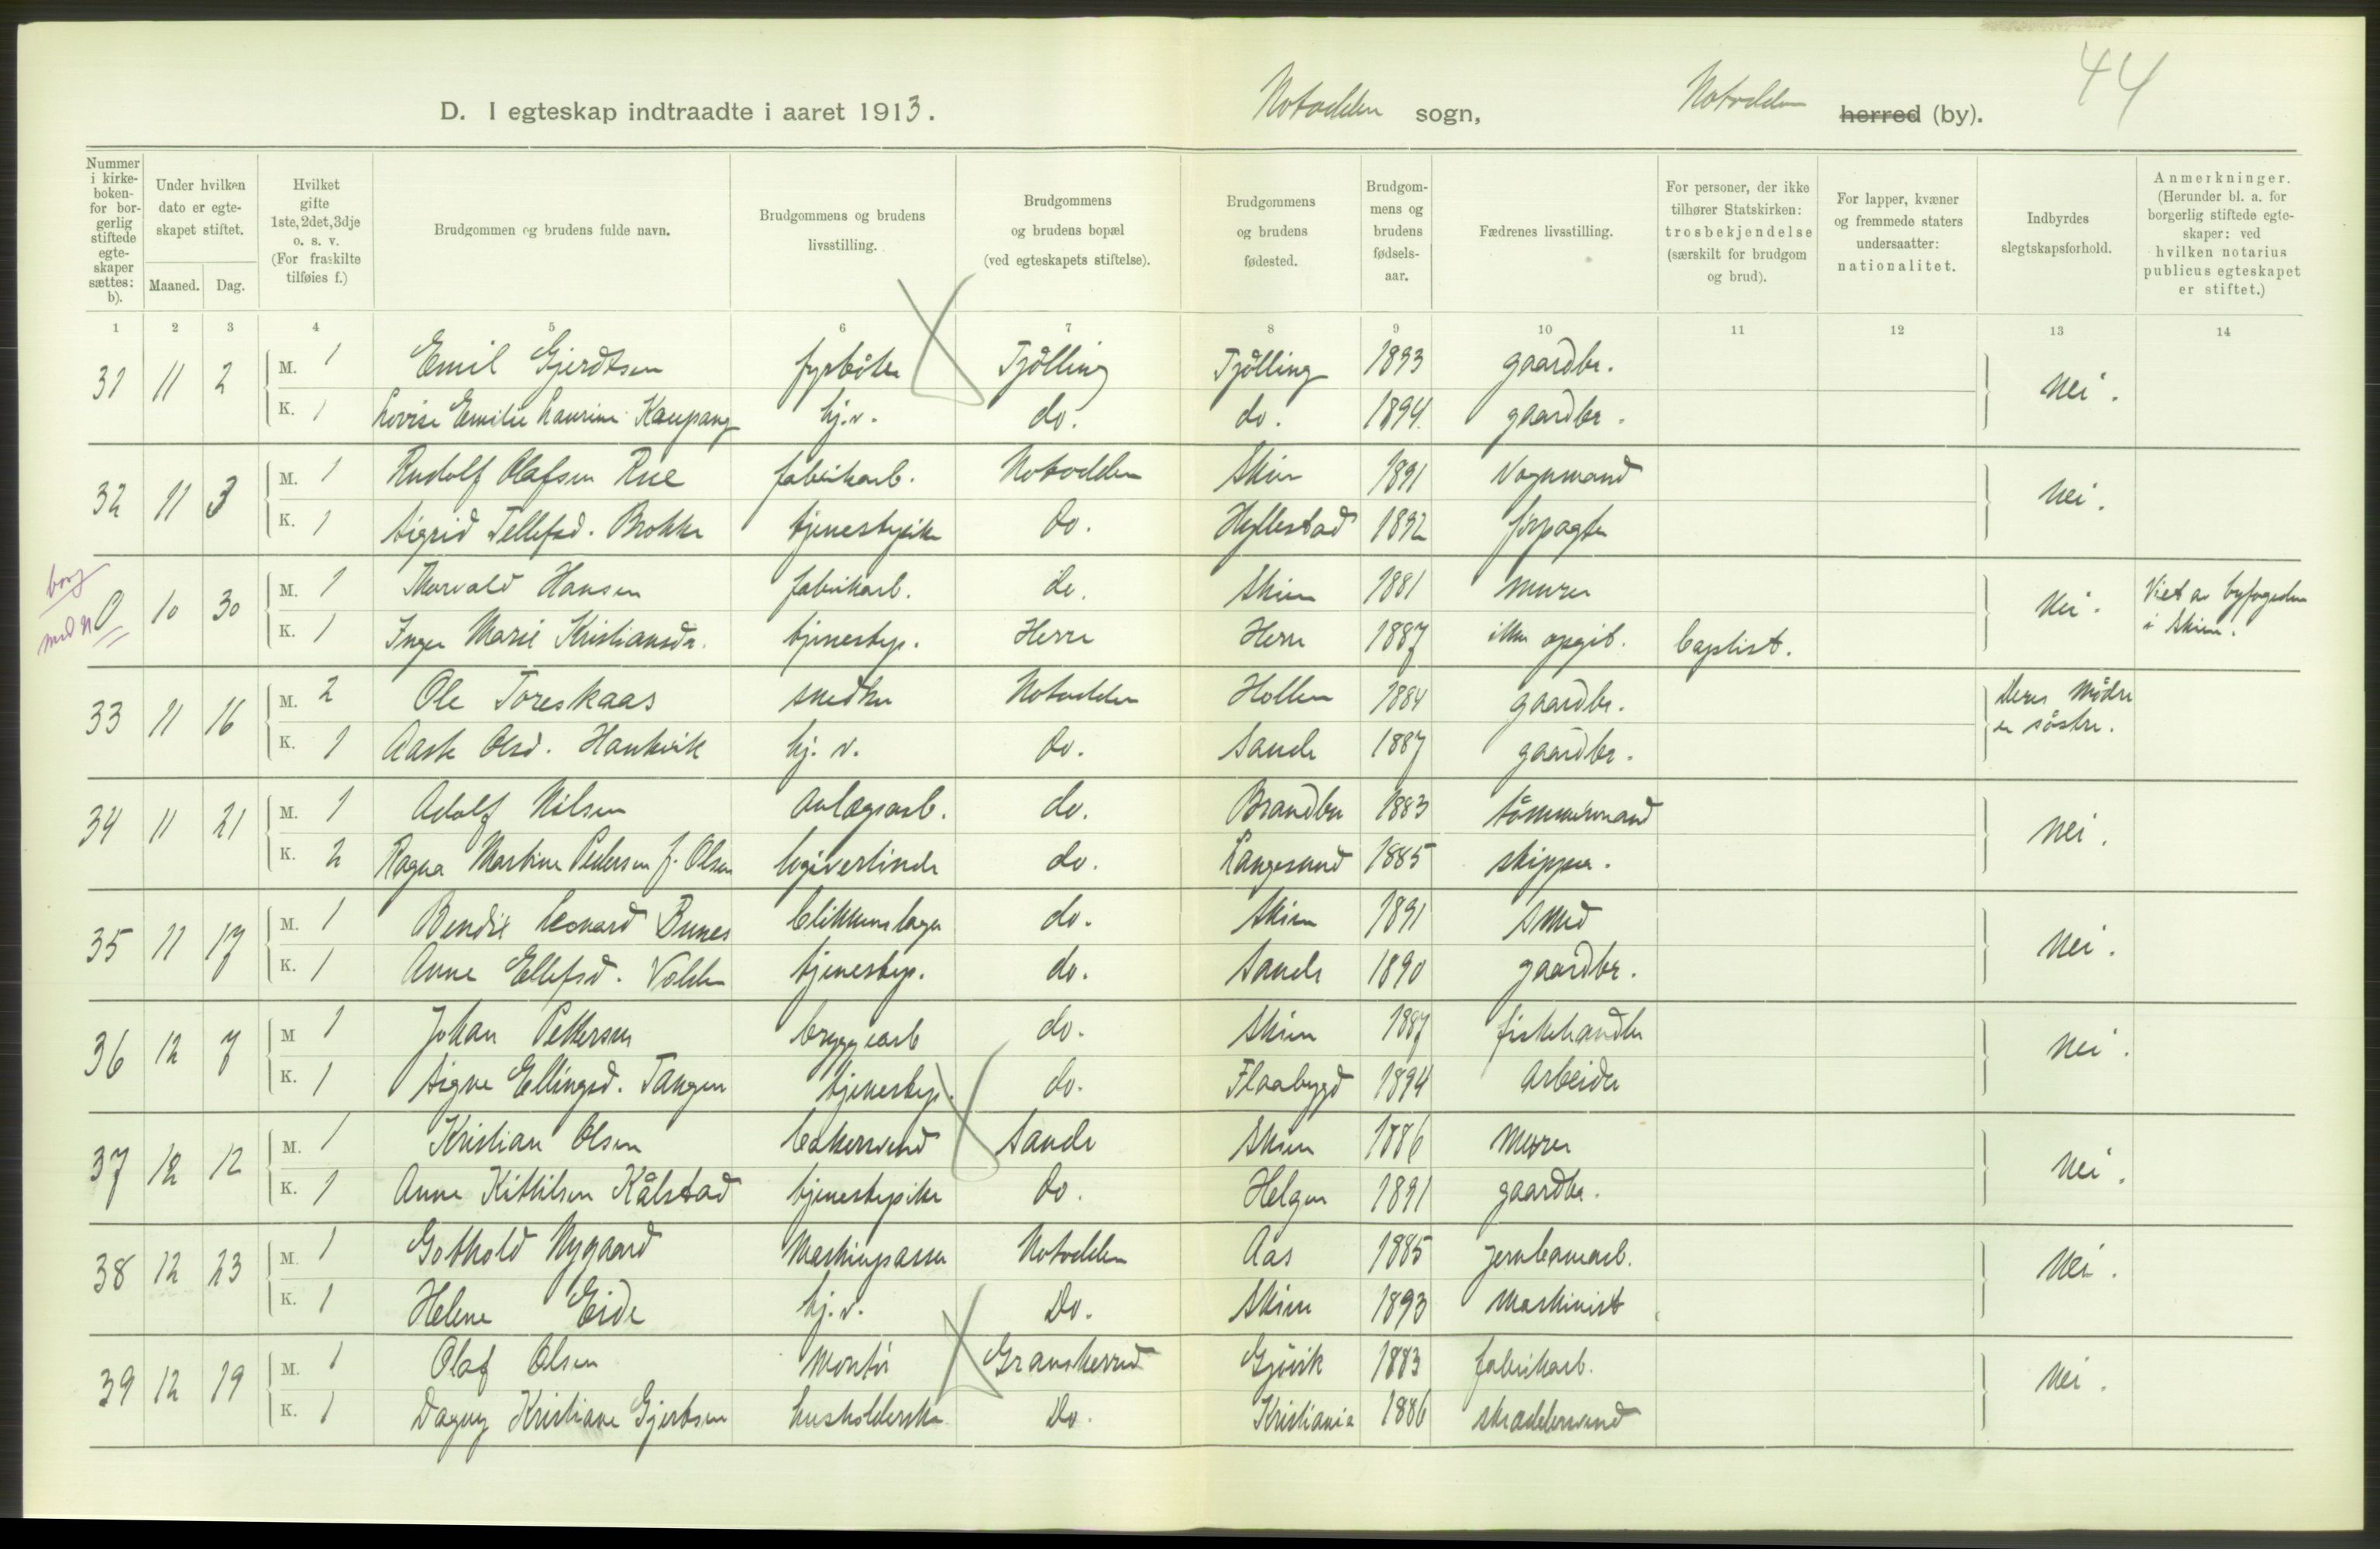 44
D. I egteskap indtraadte i aaret 1913. Notodden sogn, Notodden herred (by).
Nummer i kirkeboken- for borgerlig stiftede egteskaper sættes: b).
Under hvilken dato er egteskapet stiftet.
Maaned. Dag.
Hvilket gifte 1ste, 2det, 3dje o. s. v. (For fraskilte tilføies f.)
Brudgommen og brudens fulde navn.
Brudgommens og brudens livsstilling.
Brudgommens og brudens bopæl (ved egteskapets stiftelse).
Brudgommens og brudens fødested.
Brudgommens og brudens fødselsaar.
Fædrenes livsstilling.
For personer, der ikke tilhører Statskirken: trosbekjendelse (særskilt for brudgom og brud).
For lapper, kvæner og fremmede staters undersaatter: nationalitet.
Indbyrdes slegtskapsforhold.
Anmerkninger. (Herunder bl. a. for borgerlig stiftede egteskaper: ved hvilken notarius publicus egteskapet er stiftet.)
1 2 3 4 5 6 7 8 9 10 11 12 13 14
31 11 2 M. 1 Emil Gjerdtsen fyrbøter Tjølling Tjølling 1893 gaardbr. Nei.
K. 1 Lovise Emilie Laurine Kaupang hj.v. do. do. 1894. gaardbr.
32 11 3 M. 1 Rudolf Olafsen Rue fabrikarb. Notodden Skien 1891 Vognmand Nei.
K. 1 Sigrid Tellefsd. Brokke tjenestepike Do. Hyllestad 1892 forpagter
borg
med n 0 10 30 M. 1 Thorvald Hansen fabrikarb. do. Skien 1881 murer Nei. Viet av byfogeden
K. 1 Inger Marie Kristiansdr. tjenestep. Herre Herre 1887 ikke opgit. baptist. i Skien.
33 11 16 M. 2 Ole Toreskaas snedker Notodden Hollen 1884 gaardbr. Deres Mødre
K. 1 Aaste Olsd. Haukvik hj. v. Do. Sande 1887 gaardbr. er søstre.
34 11 21 M. 1 Adolf Nilsen Anlægsarb. do. Brandbu 1883 tømmermand Nei.
K. 2 Ragna Martine Pedersen f. Olsen logivertinde do. Langesund 1885 skipper.
35 11 17 M. 1 Bendix Leonard Bunes blikkenslager do. Skien 1891 Smed Nei.
K. 1 Anne Ellefsd. Volden tjenestep. do. Sande 1890 gaardbr.
36 12 7 M 1 Johan Pettersen bryggearb do. Skien 1887 fiskehandler Nei.
K. 1 Signe Ellingsd. Tangen tjenestep. do. Flaabygd 1894 Arbeider
37 12 12 M. 1 Kristian Olsen bakersvend Sande Skien 1886 Murer Nei.
K. 1 Anne Kittilsen Kålstad tjenestepike Do. Helgen 1891 gaardbr.
38 12 23 M. 1 Gothold Nygaard Maskinpasser Notodden Aas 1885 jernbanearb. Nei.
K. 1 Helene Eide hj.v. Do. Skien 1893 Maskinist
39 12 19 M. 1 Olaf Olsen Montør Gransherred Gjøvik 1883 fabrikarb. Nei.
K. 1 Dagny Kristiane Gjertsen husholderske Do. Kristiania 1886 skræddersvend